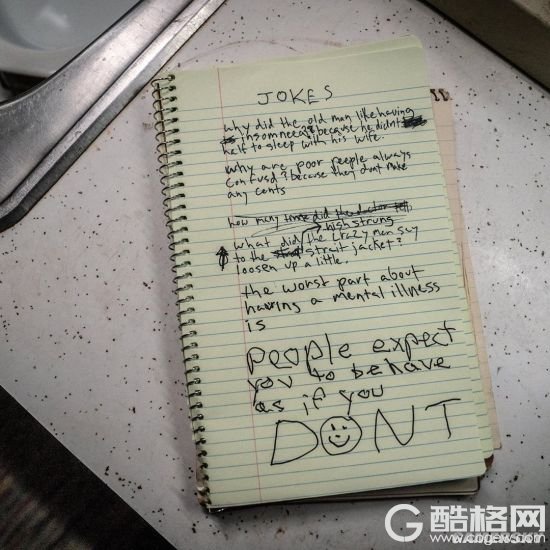 JOKES
why did the old man like having
insomneea? because he didnt
haff to sleep with his wife.
Why are poor people always
Confusd? because they dont make
any cents
how many did the doctor tell
high strung
what did the crazy man say
to the strait jacket?
loosen up a little.
the worst part about
having a mental illness
is
people expect
you to behave
as if you
DONT
酷格网